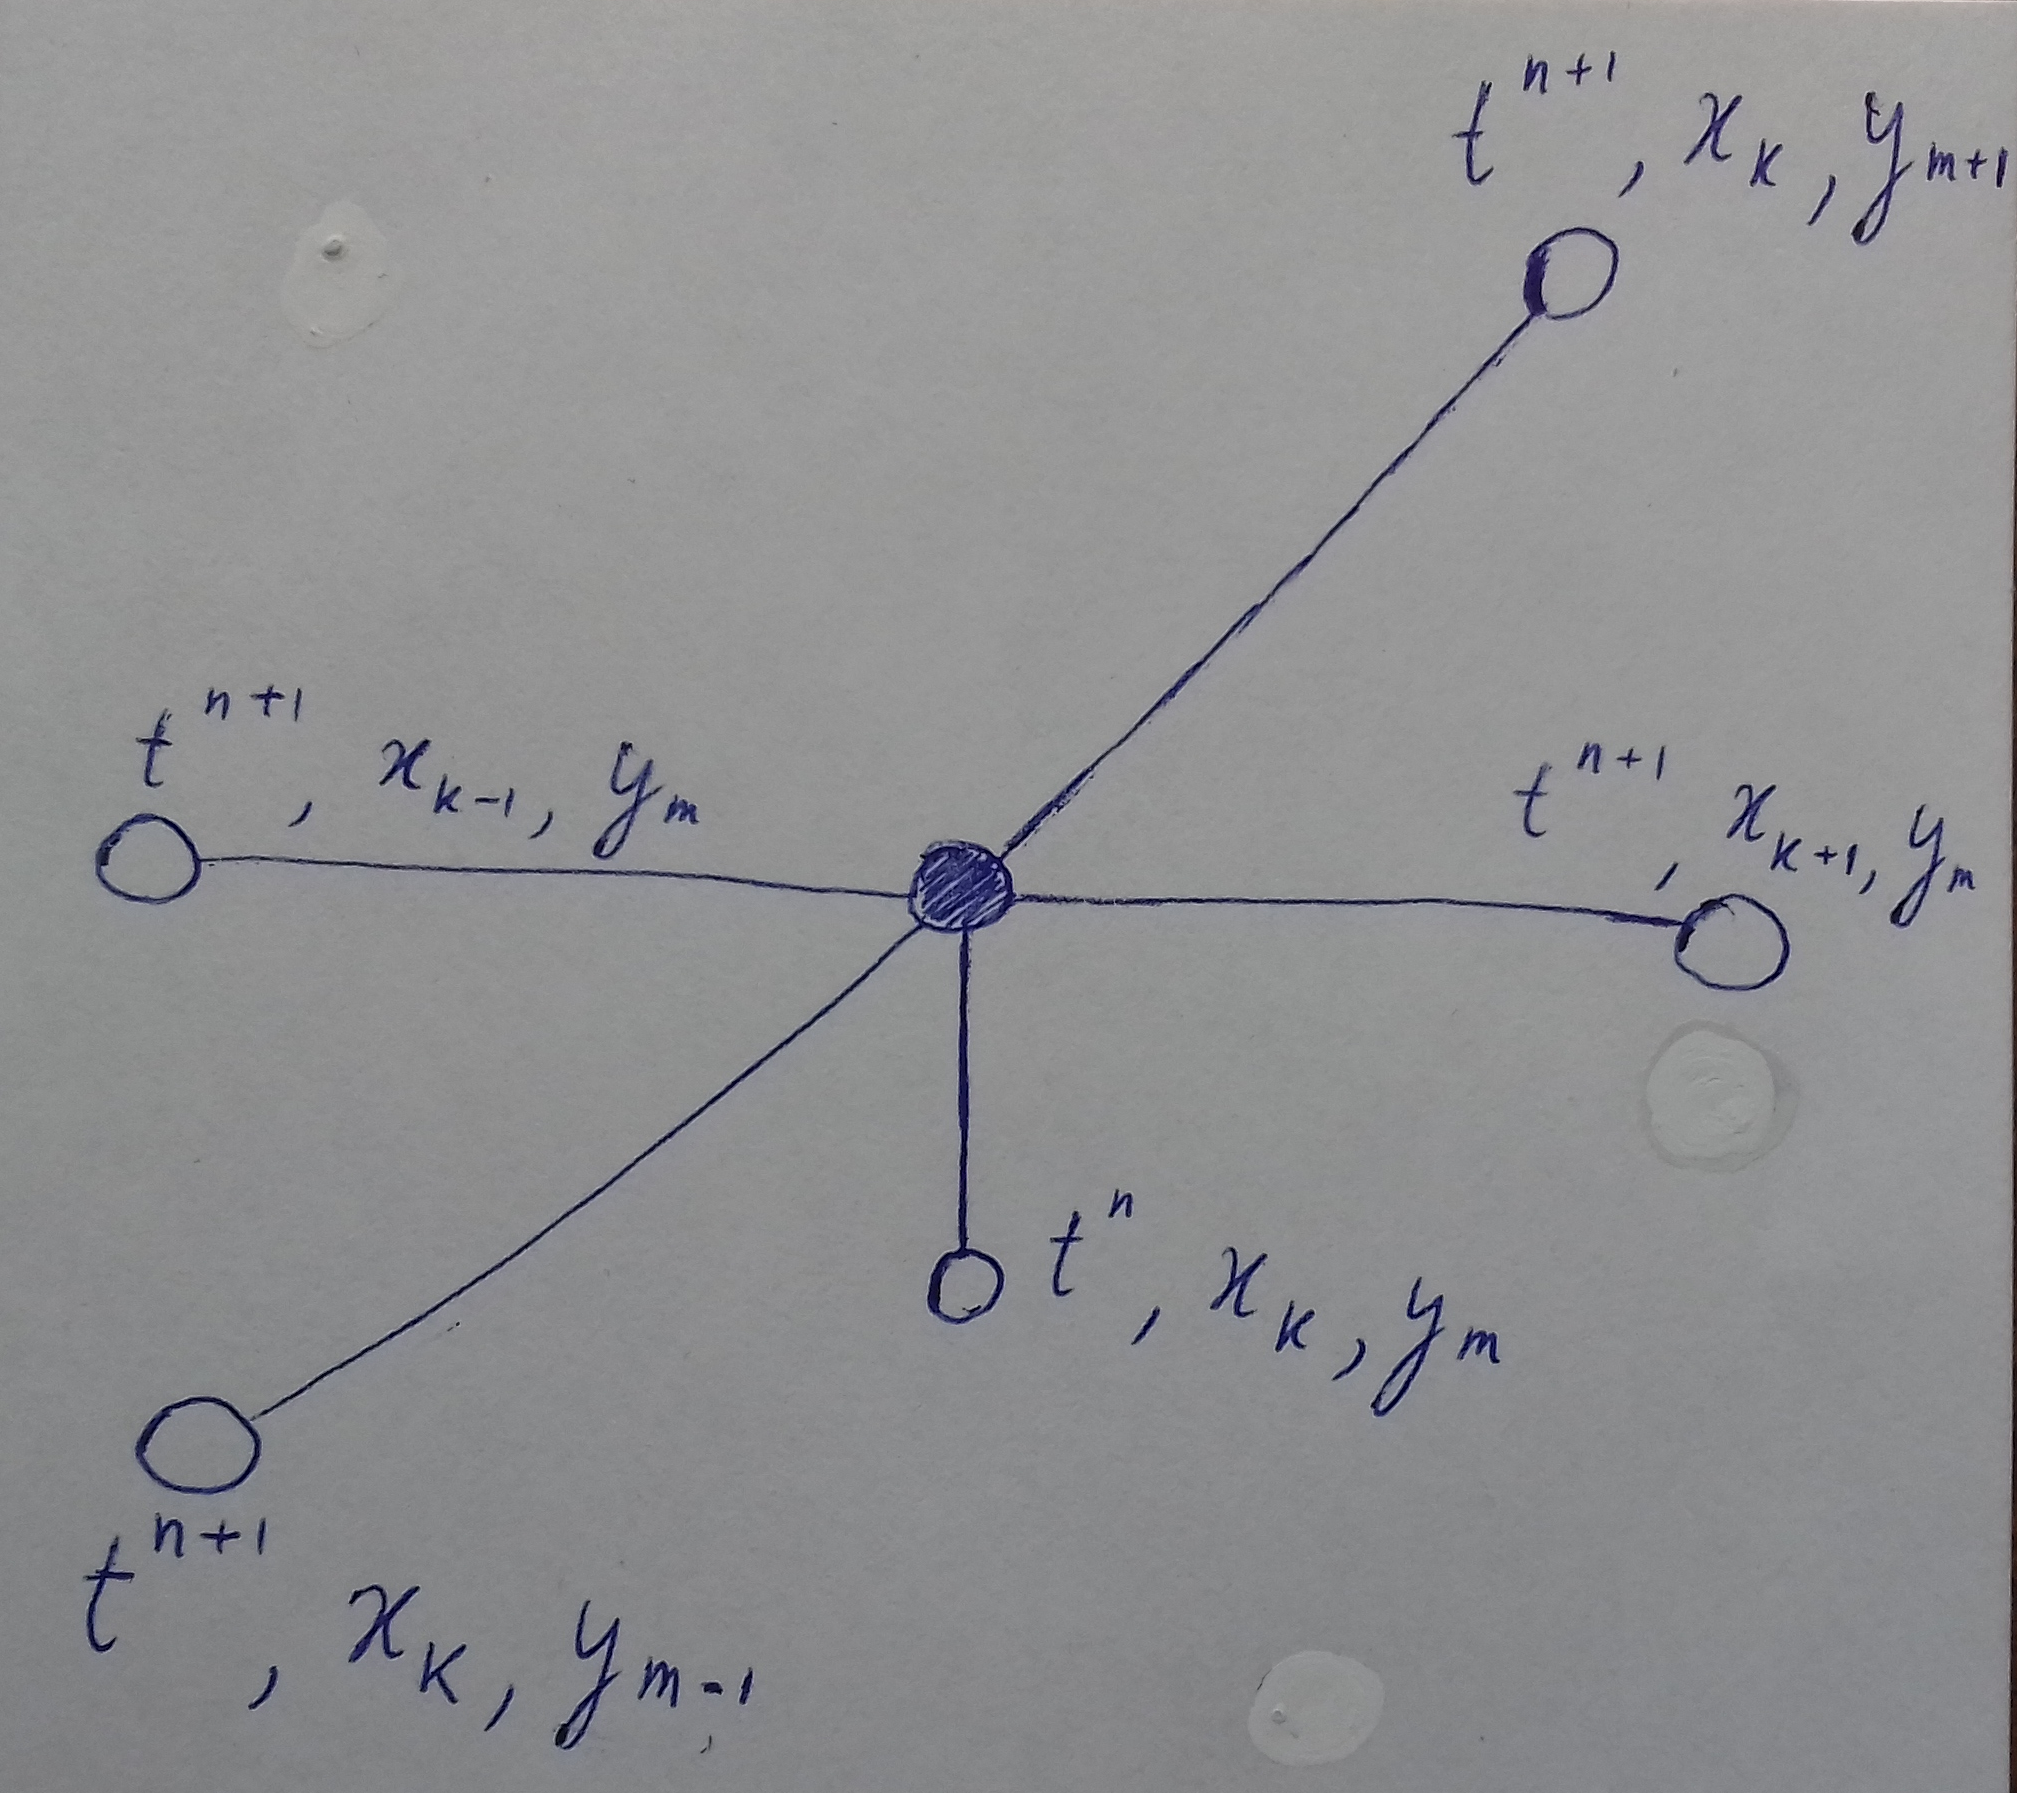 t^{n+1}, x_k, y_{m+1}
t^{n+1}, x_{k-1}, y_m
t^{n+1}, x_{k+1}, y_m
t^n, x_k, y_m
t^{n+1}, x_k, y_{m-1}